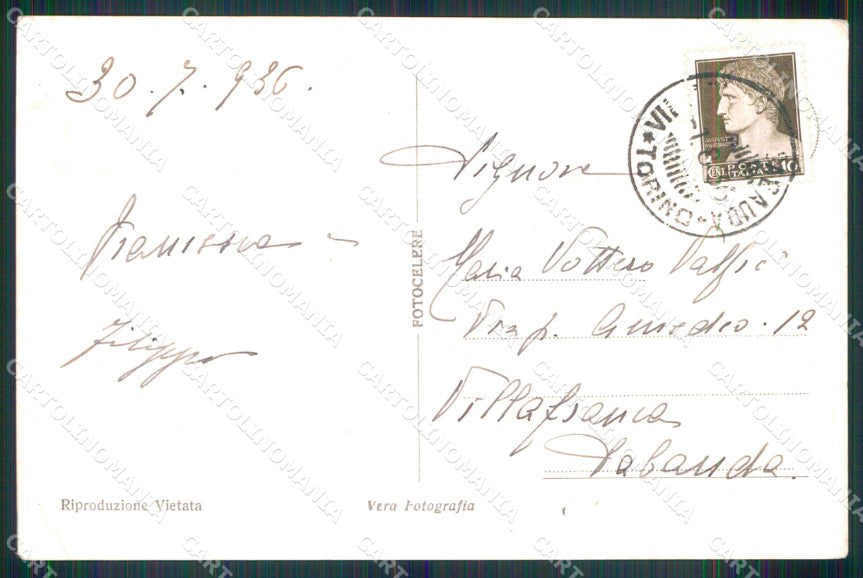 30.7.936.
Francesca -
Filippo
Signora
Maria Vottero Dalfré
Via p. Amedeo. 12
Villafranca
Sabauda.
FOTOCELERE
Riproduzione Vietata
Vera Fotografia
CENT. POSTE 10
ITALIANE
TORINO
CARTOLINOMANIA